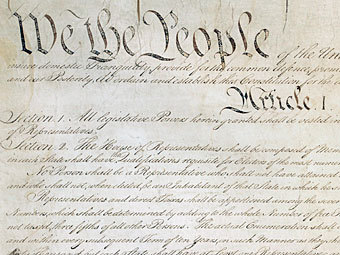 We the People
of the Un
insure domestic Tranquility, provide for the common defence, prom
and our Posterity, do ordain and establish this Constitution for the
Article. I.
Section. 1. All legislative Powers herein granted shall be vested in
of Representatives.
Section. 2. The House of Representatives shall be composed of Mem
in each State shall have the Qualifications requisite for Electors of the most numer
No Person shall be a Representative who shall not have attained
and who shall not, when elected, be an Inhabitant of that State in which he
Representatives and direct Taxes shall be apportioned among the sever
Numbers, which shall be determined by adding to the whole Number of free
not taxed, three fifths of all other Persons. The actual Enumeration shall
and within every subsequent Term of ten Years, in such Manner as they sha